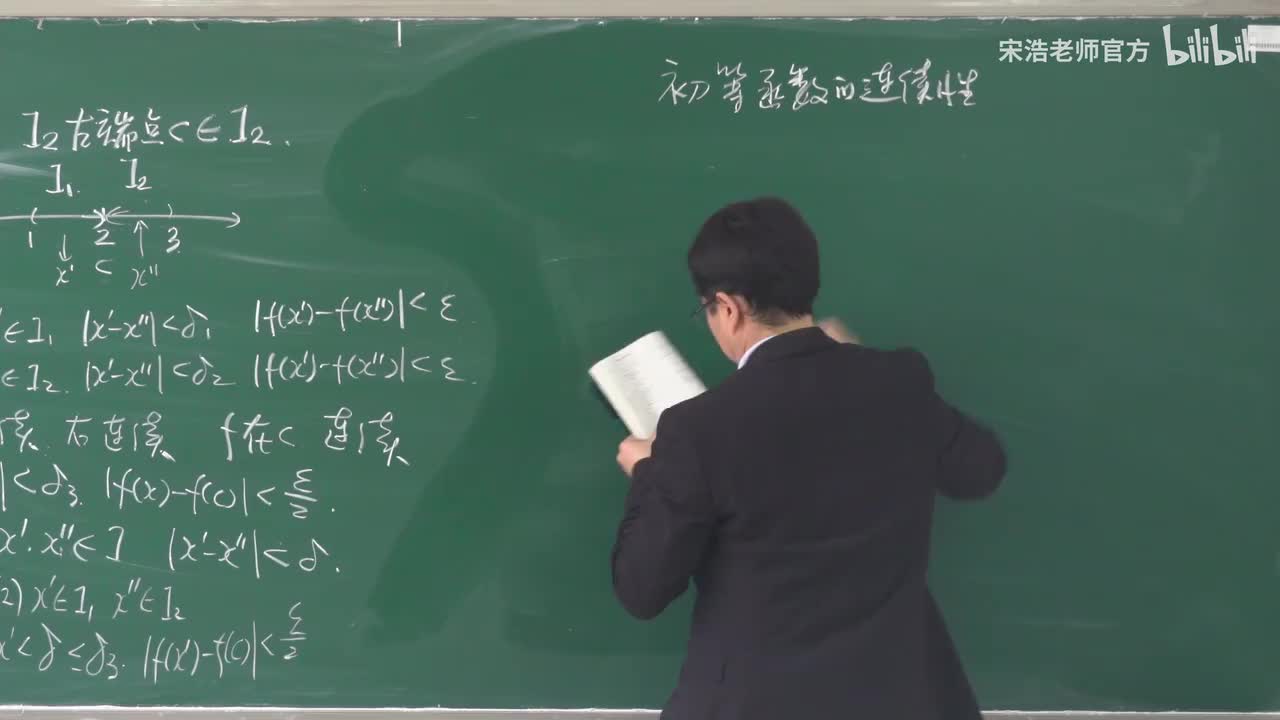 宋浩老师官方 bilibili
初等函数的连续性
I₂右端点c∈I₂.
I₁. I₂
1 2 3
x' c x''
∈I₁ |x'-x''|<δ₁ |f(x')-f(x'')|<ε
∈I₂. |x'-x''|<δ₂ |f(x')-f(x'')|<ε.
续. 右连续 f在c 连续
|<δ₃. |f(x)-f(c)|<ε/2.
x'.x''∈I |x'-x''|<δ.
2) x'∈I₁ x''∈I₂
x'<δ≤δ₃. |f(x')-f(c)|<ε/2